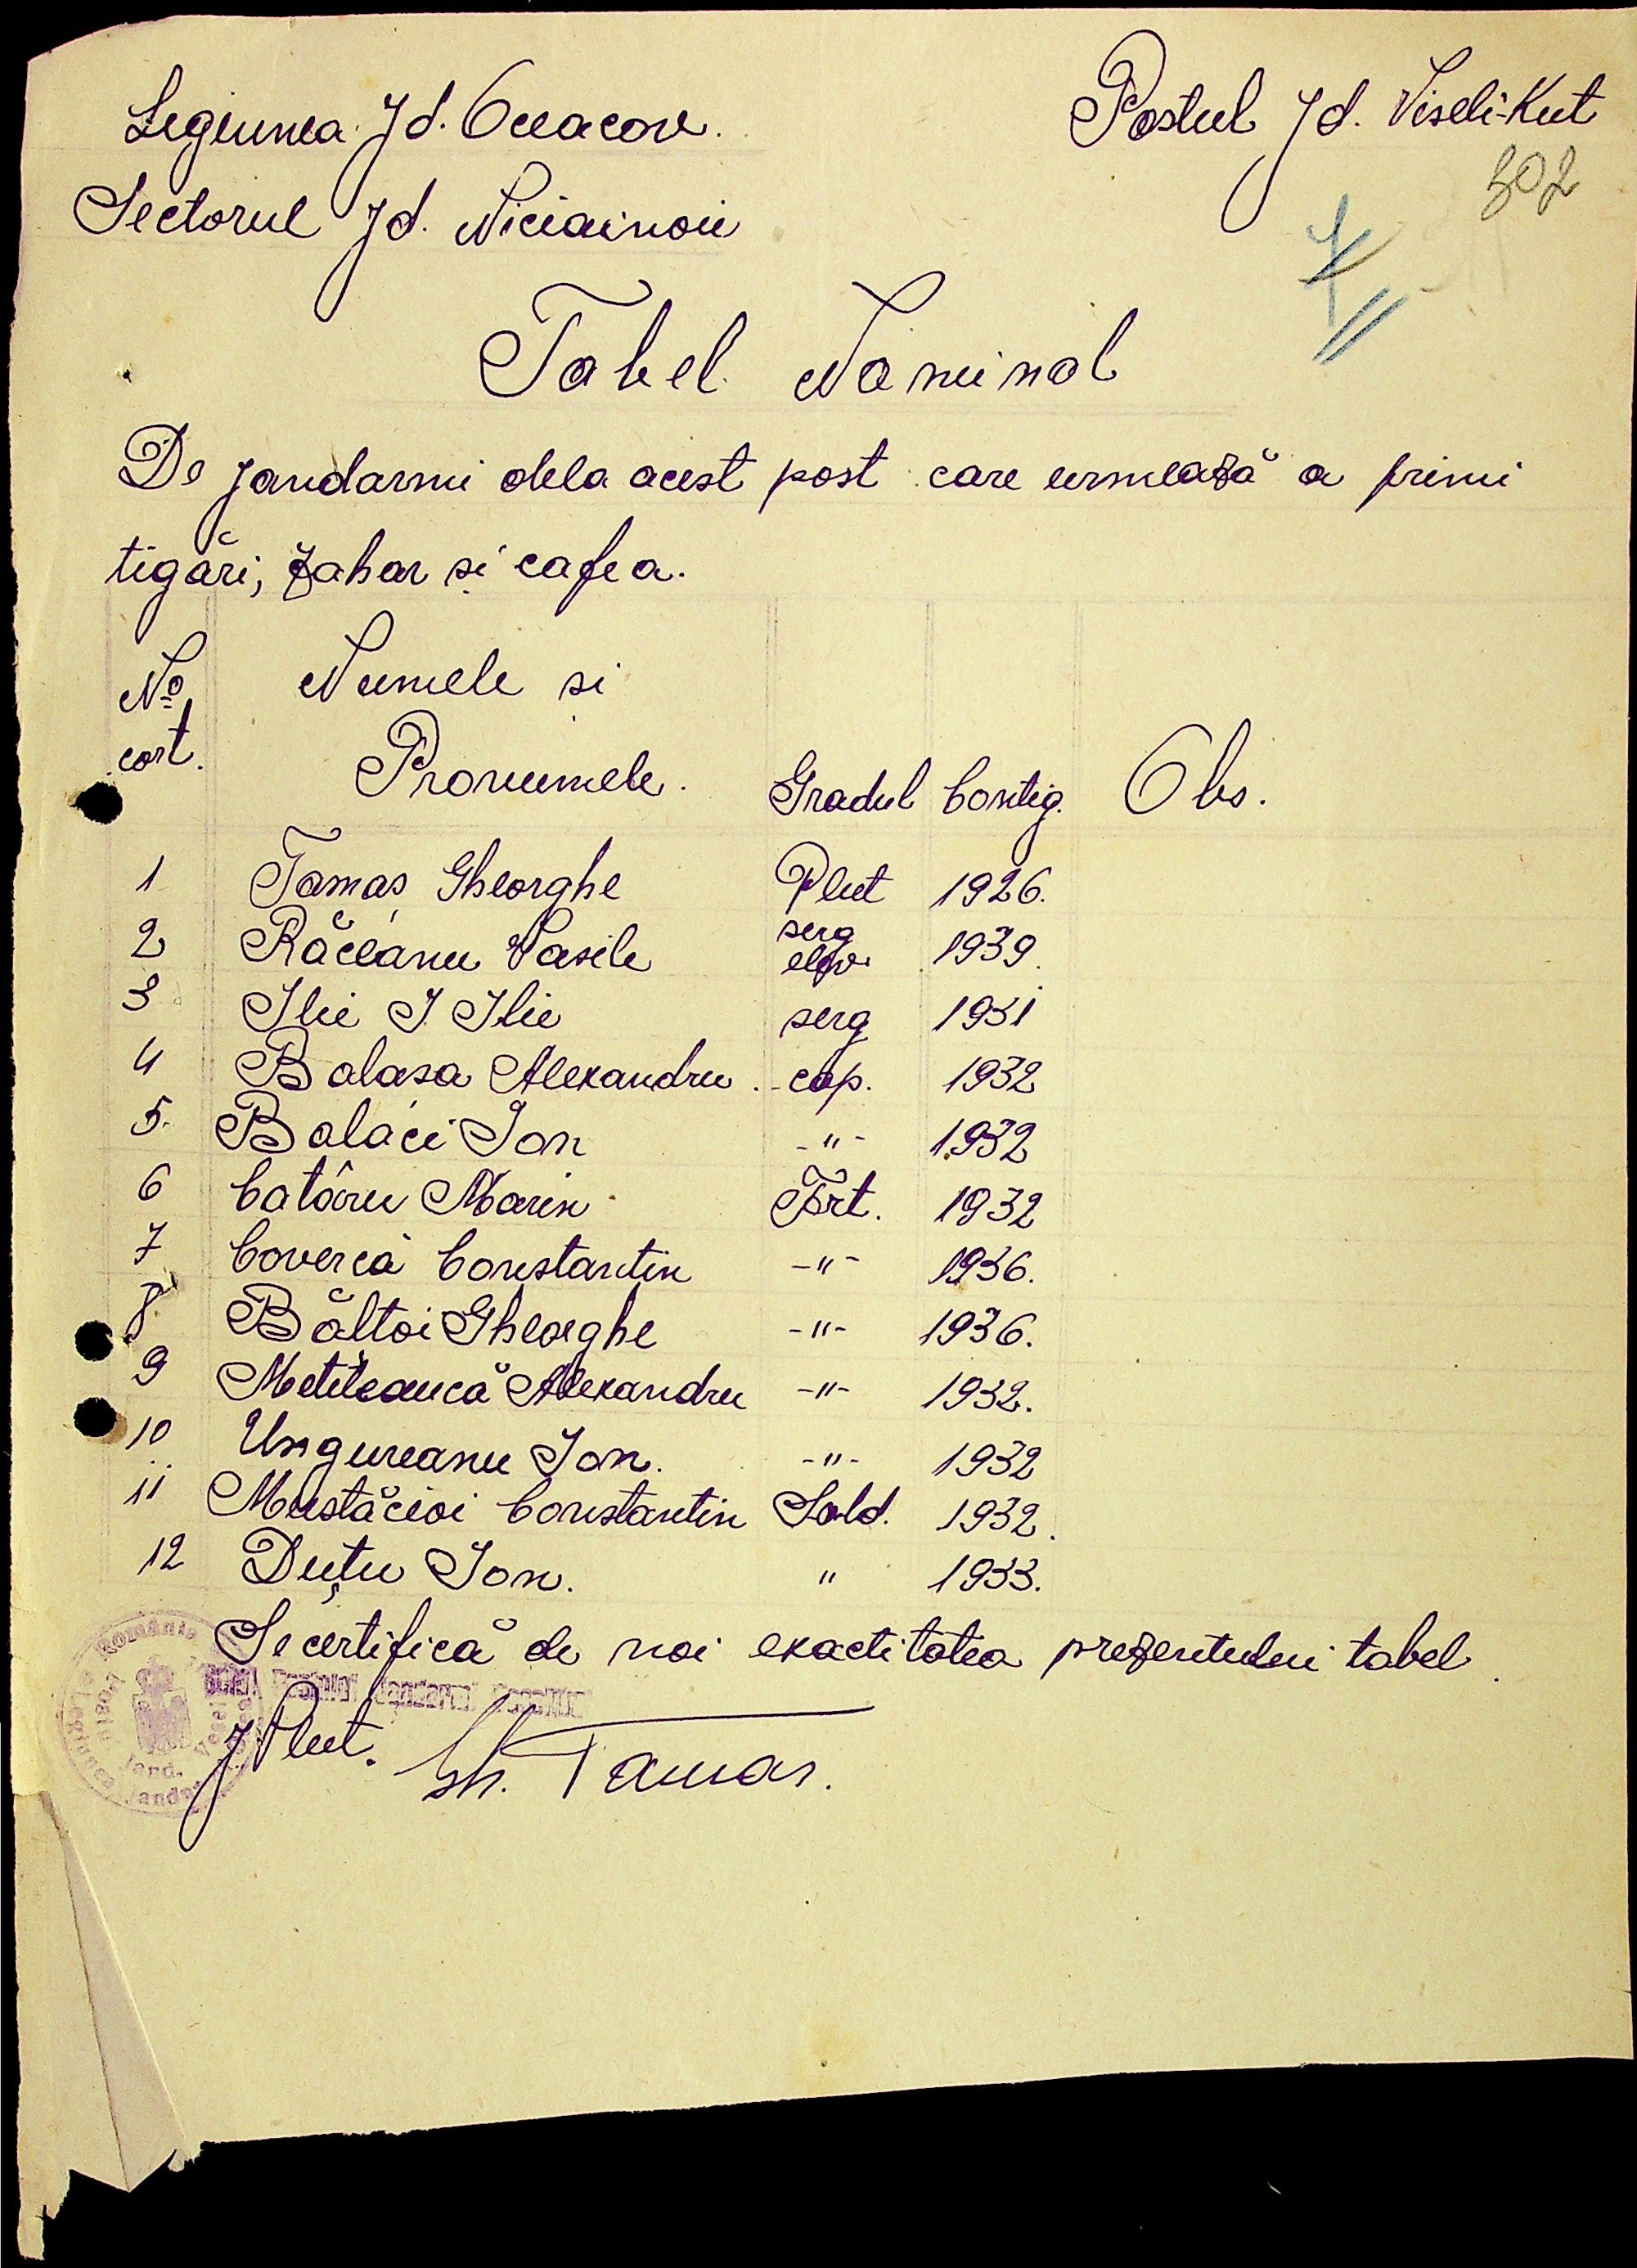 Legiunea Jd. Oceacov.
Postul Jd. Viseli-Kut
302
Sectorul Jd. Niciainoie
Tabel Nominal
De jandarmi dela acest post care urmează a primi
tigări, zahar si cafea.
No cort. Numele si Pronumele. Gradul Contig. Obs.
1 Tamaș Gheorghe Plut 1926.
2 Răceanu Vasile serg elev 1939.
3 Ilie I Ilie serg 1931
4 Balasa Alexandru cap. 1932
5. Balaci Ion -"- 1932
6 Catâru Marin Frt. 1932
7 Covercă Constantin -"- 1936.
8. Băltoi Gheorghe -"- 1936.
9 Metiteaucă Alexandru -"- 1932.
10 Ungureanu Ion. -"- 1932
11 Mustăcioi Constantin Sold. 1932.
12 Duțu Ion. " 1933.
Se certifică de noi exactitatea prezentului tabel.
România
Postului Jandarmi
J Plut. Gh. Tamas.